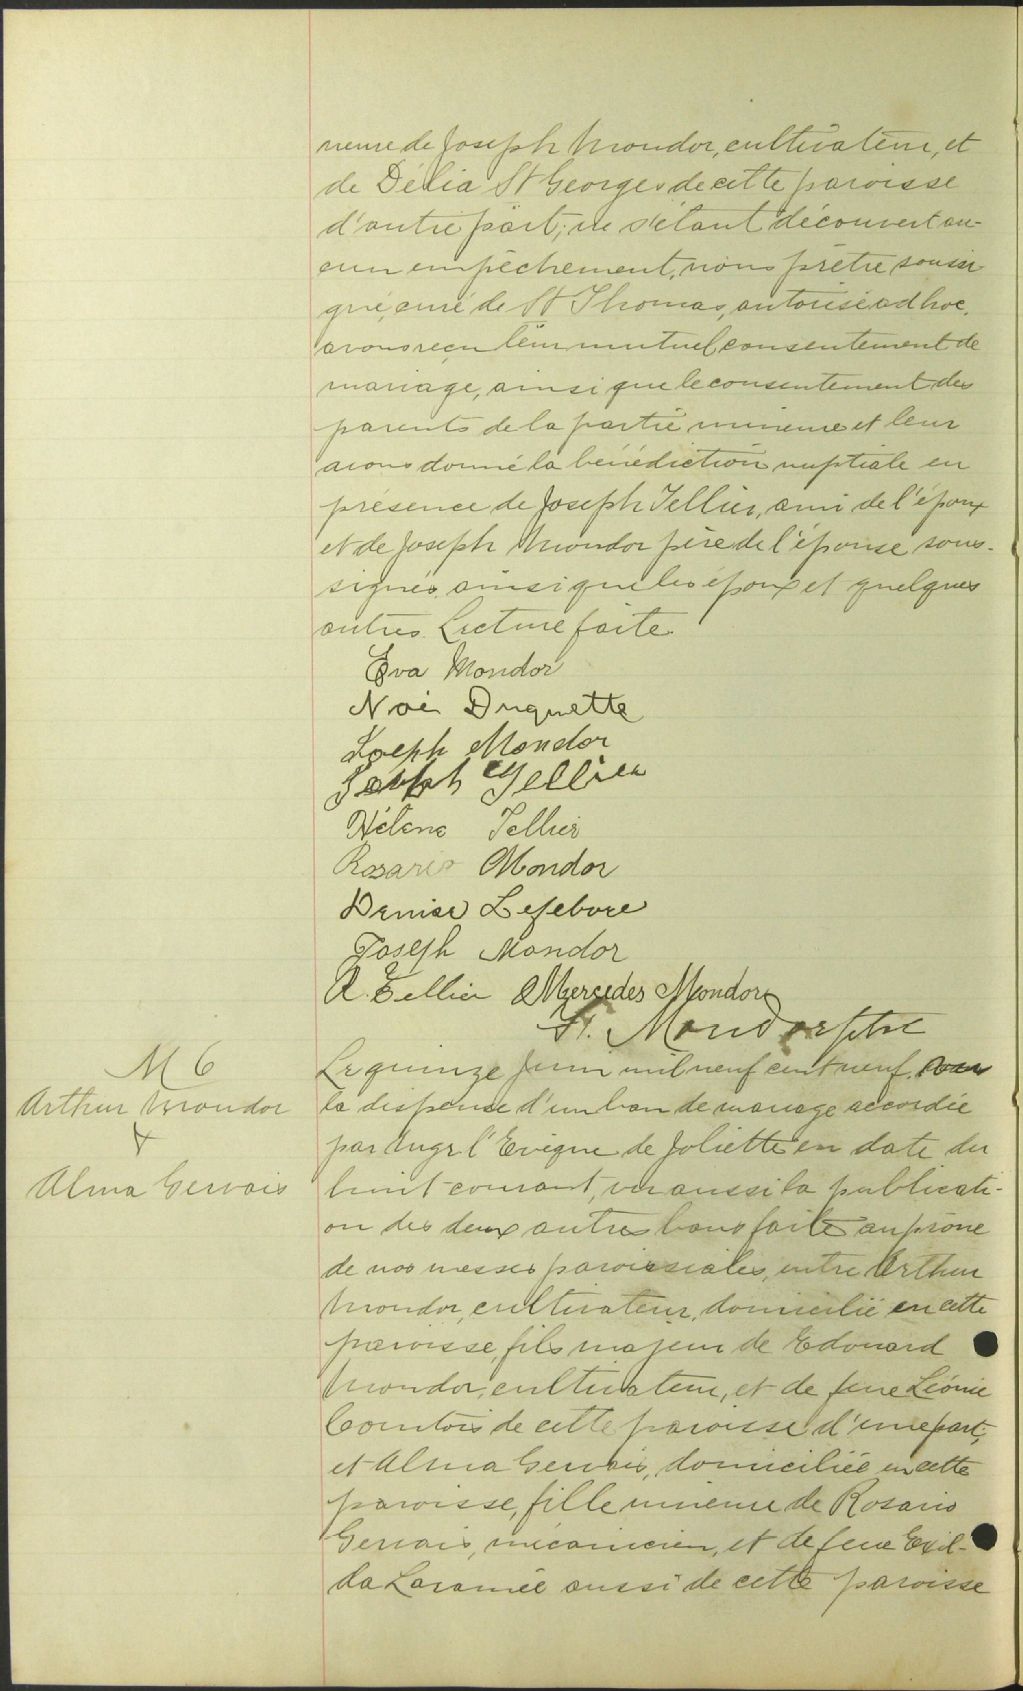 neure de Joseph Mondor, cultivateur, et
de Délia St Georges de cette paroisse
d'autre part; ne s'étant découvert au-
cun empêchement, nous prêtre soussi
gné, curé de St Thomas, autorisé ad hoc,
avons reçu leur mutuel consentement de
mariage, ainsi que le consentement des
parents de la partie mineure et leur
avons donné la bénédiction nuptiale en
présence de Joseph Tellier, ami de l'époux
et de Joseph Mondor père de l'épouse sous-
signés ainsi que les époux et quelques
autres. Lecture faite.
Eva Mondor
Noé Duquette
Joseph Mondor
Joseph Tellier
Hélène Tellier
Rosario Mondor
Denise Lefebvre
Joseph Mondor
R. Tellier Mercedes Mondor
Mondor ptre
M 6
Arthur Mondor
&
Alma Gervais
Le quinze Juin mil neuf cent neuf, vu
la dispense d'un ban de mariage accordée
par Mgr l'Evêque de Joliette en date du
huit courant, vu aussi la publicati-
on des deux autres bans faite au prône
de nos messes paroissiales, entre Arthur
Mondor, cultivateur, domicilié en cette
paroisse, fils majeur de Edouard
Mondor, cultivateur, et de feue Léonie
Comtois de cette paroisse d'une part;
et Alma Gervais, domiciliée en cette
paroisse, fille mineure de Rosario
Gervais, mécanicien, et de feue Exil-
da Laramée aussi de cette paroisse